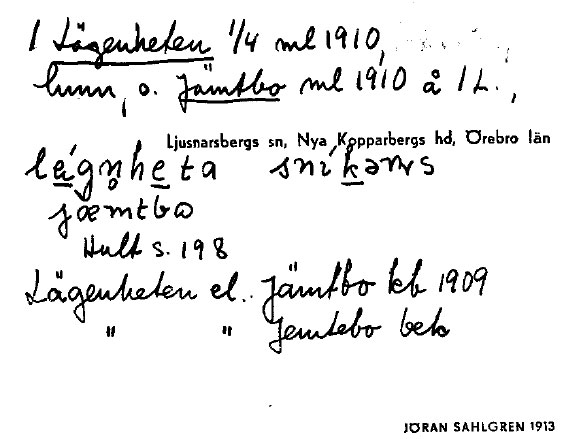 1 Lägenheten 1/4 ml 1910,
hmn, o. Jämtbo ml 1910 å 1 L.,
Ljusnarsbergs sn, Nya Kopparbergs hd, Örebro län
Hult s. 198
Lägenheten el. Jämtbo kb 1909
" " Jemtebo bek
JÖRAN SAHLGREN 1913